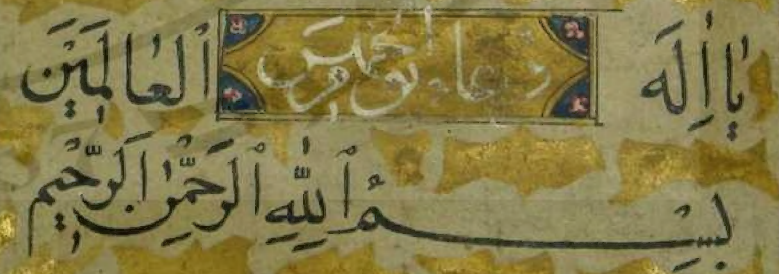 يَا إِلَهَ دعاء يوم الخميس الْعَالَمِينَ
بِسْمِ اللَّهِ الرَّحْمَٰنِ الرَّحِيمِ